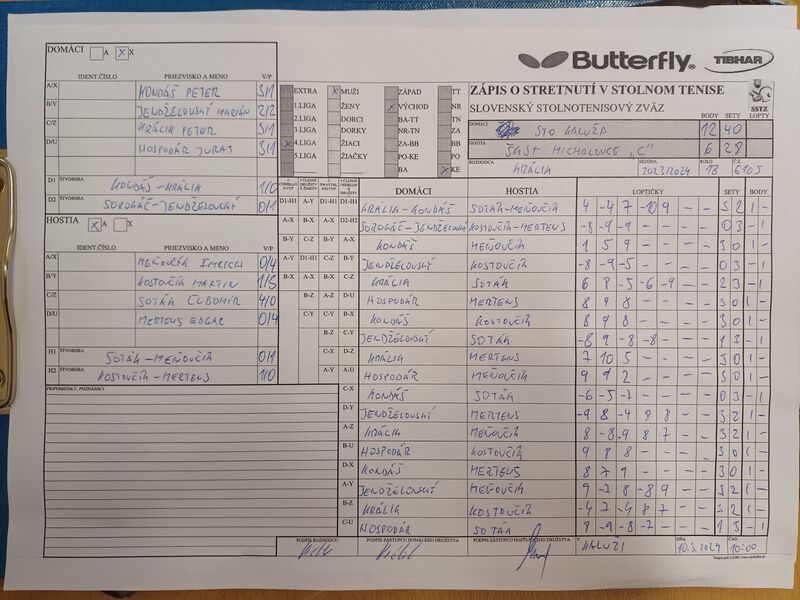 DOMÁCI A X X
IDENT.ČÍSLO PRIEZVISKO A MENO V/P
A/X KONDÁŠ PETER 3/1
B/Y JENDŽELOVSKÝ MARIÁN 2/2
C/Z KRÁLIK PETER 3/1
D/U HOSPODÁR JURAJ 3/1
D1 ŠTVORHRA KONDÁŠ-KRÁLIK 1/0
D2 ŠTVORHRA SOROKÁČ-JENDŽELOVSKÝ 0/1
HOSTIA X A X
IDENT.ČÍSLO PRIEZVISKO A MENO V/P
A/X MEŇOVČÍK IMRICH 0/4
B/Y KOSTOVČÍK MARTIN 1/3
C/Z SOTÁK ĽUBOMÍR 4/0
D/U MERTENS EDGAR 0/4
H1 ŠTVORHRA SOTÁK-MEŇOVČÍK 0/1
H2 ŠTVORHRA KOSTOVČÍK-MERTENS 1/0
PRIPOMIENKY, POZNÁMKY
Butterfly TIBHAR
ZÁPIS O STRETNUTÍ V STOLNOM TENISE
SLOVENSKÝ STOLNOTENISOVÝ ZVÄZ
SSTZ
EXTRA X MUŽI ZÁPAD TT
1.LIGA ŽENY X VÝCHOD NR
2.LIGA DORCI BA-TT TN
3.LIGA DORKY NR-TN ZA
X 4.LIGA ŽIACI ZA-BB BB
5.LIGA ŽIAČKY PO-KE PO
BA X KE
BODY SETY LOPTY
DOMÁCI STO KALUŽA 12 40
HOSTIA ŠKST MICHALOVCE "C" 6 28
ROZHODCA KRÁLIK SEZÓNA 2023/2024 KOLO 18 Č.Z. 6105
DOMÁCI HOSTIA LOPTIČKY SETY BODY
D1-H1 A-Y D1-H1 KRÁLIK-KONDÁŠ SOTÁK-MEŇOVČÍK 4 -4 7 -10 9 - - 3 2 1 -
A-X B-X A-X D2-H2 SOROKÁČ-JENDŽELOVSKÝ KOSTOVČÍK-MERTENS -8 -9 -9 - - - - 0 3 - 1
B-Y C-Z B-Y A-X KONDÁŠ MEŇOVČÍK 1 5 9 - - - - 3 0 1 -
A-Y D1-H1 C-Z B-Y JENDŽELOVSKÝ KOSTOVČÍK -8 -9 -5 - - - - 0 3 - 1
B-X A-X B-X C-Z KRÁLIK SOTÁK 6 8 -5 -6 -9 - - 2 3 - 1
B-Z A-Z D-U HOSPODÁR MERTENS 8 9 8 - - - - 3 0 1 -
C-Y C-Y B-X KONDÁŠ KOSTOVČÍK 8 9 8 - - - - 3 0 1 -
B-Z C-Y JENDŽELOVSKÝ SOTÁK -8 9 -8 -8 - - - 1 3 - 1
C-X D-Z KRÁLIK MERTENS 7 10 5 - - - - 3 0 1 -
A-Y A-U HOSPODÁR MEŇOVČÍK 9 9 2 - - - - 3 0 1 -
C-X KONDÁŠ SOTÁK -6 -5 -7 - - - - 0 3 - 1
D-Y JENDŽELOVSKÝ MERTENS -9 8 -4 8 8 - - 3 2 1 -
A-Z KRÁLIK MEŇOVČÍK 8 -8 -9 8 7 - - 3 2 1 -
B-U HOSPODÁR KOSTOVČÍK 9 8 8 - - - - 3 0 1 -
D-X KONDÁŠ MERTENS 8 7 9 - - - - 3 0 1 -
A-Y JENDŽELOVSKÝ MEŇOVČÍK 9 -7 8 -8 9 - - 3 2 1 -
B-Z KRÁLIK KOSTOVČÍK -4 7 -4 8 7 - - 3 2 1 -
C-U HOSPODÁR SOTÁK 8 -9 -8 -7 - - - 1 3 - 1
PODPIS ROZHODCU PODPIS ZÁSTUPCU DOMÁCEHO DRUŽSTVA PODPIS ZÁSTUPCU HOSŤUJÚCEHO DRUŽSTVA V KALUŽI DŇA 10.3.2024 ČAS 10:00